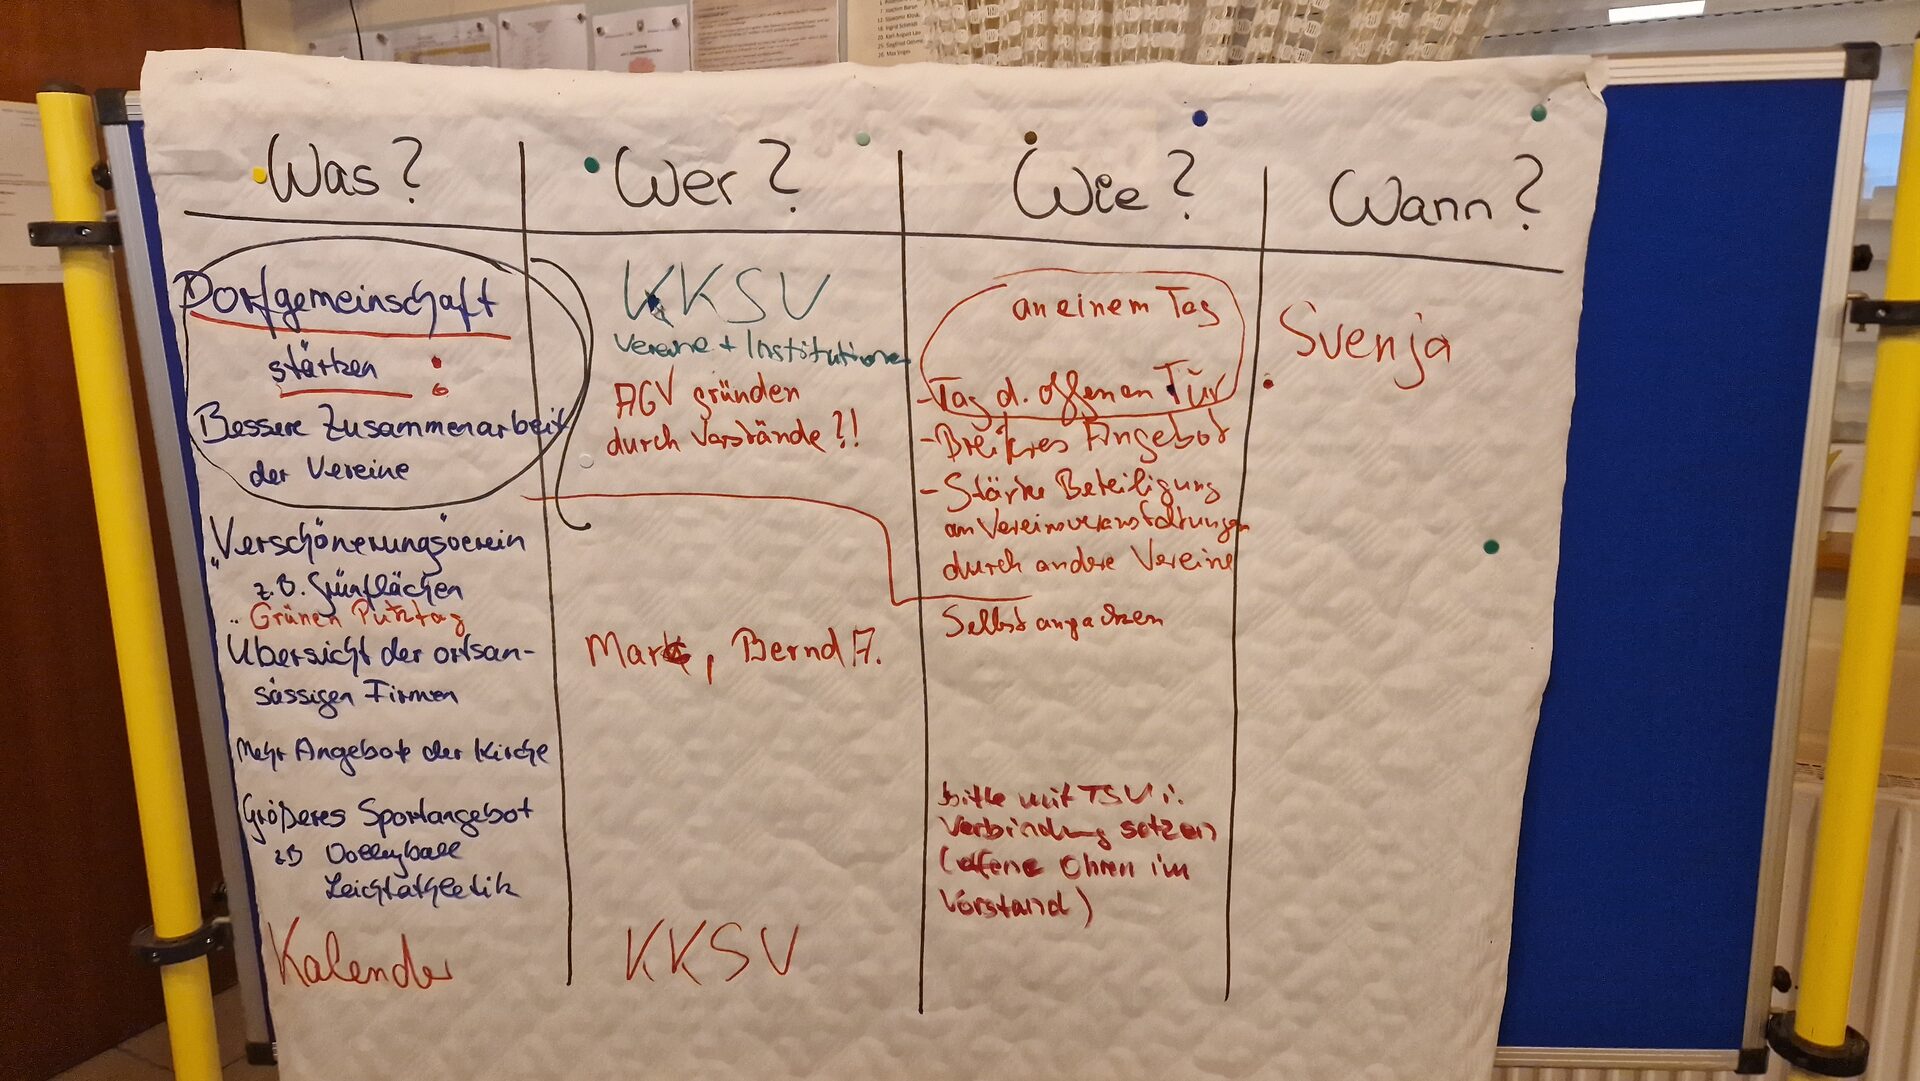 Was?
Wer?
Wie?
Wann?
Dorfgemeinschaft
stärken
Bessere Zusammenarbeit
der Vereine
"Verschönerungsverein"
z.B. Grünflächen
Grünen Putztag
Übersicht der ortsan-
sässigen Firmen
Mehr Angebote der Kirche
Größeres Sportangebot
zB Volleyball
Leichtathletik
Kalender
KKSV
Vereine + Institutionen
AGV gründen
durch Vorstände?!
Mark, Bernd A.
KKSV
an einem Tag
- Tag d. offenen Tür
- Breiteres Angebot
- Stärke Beteiligung
an Vereinsveranstaltungen
durch andere Vereine
Selbst anpacken
bitte mit TSV i.
Verbindung setzen
(offene Ohren im
Vorstand)
Svenja